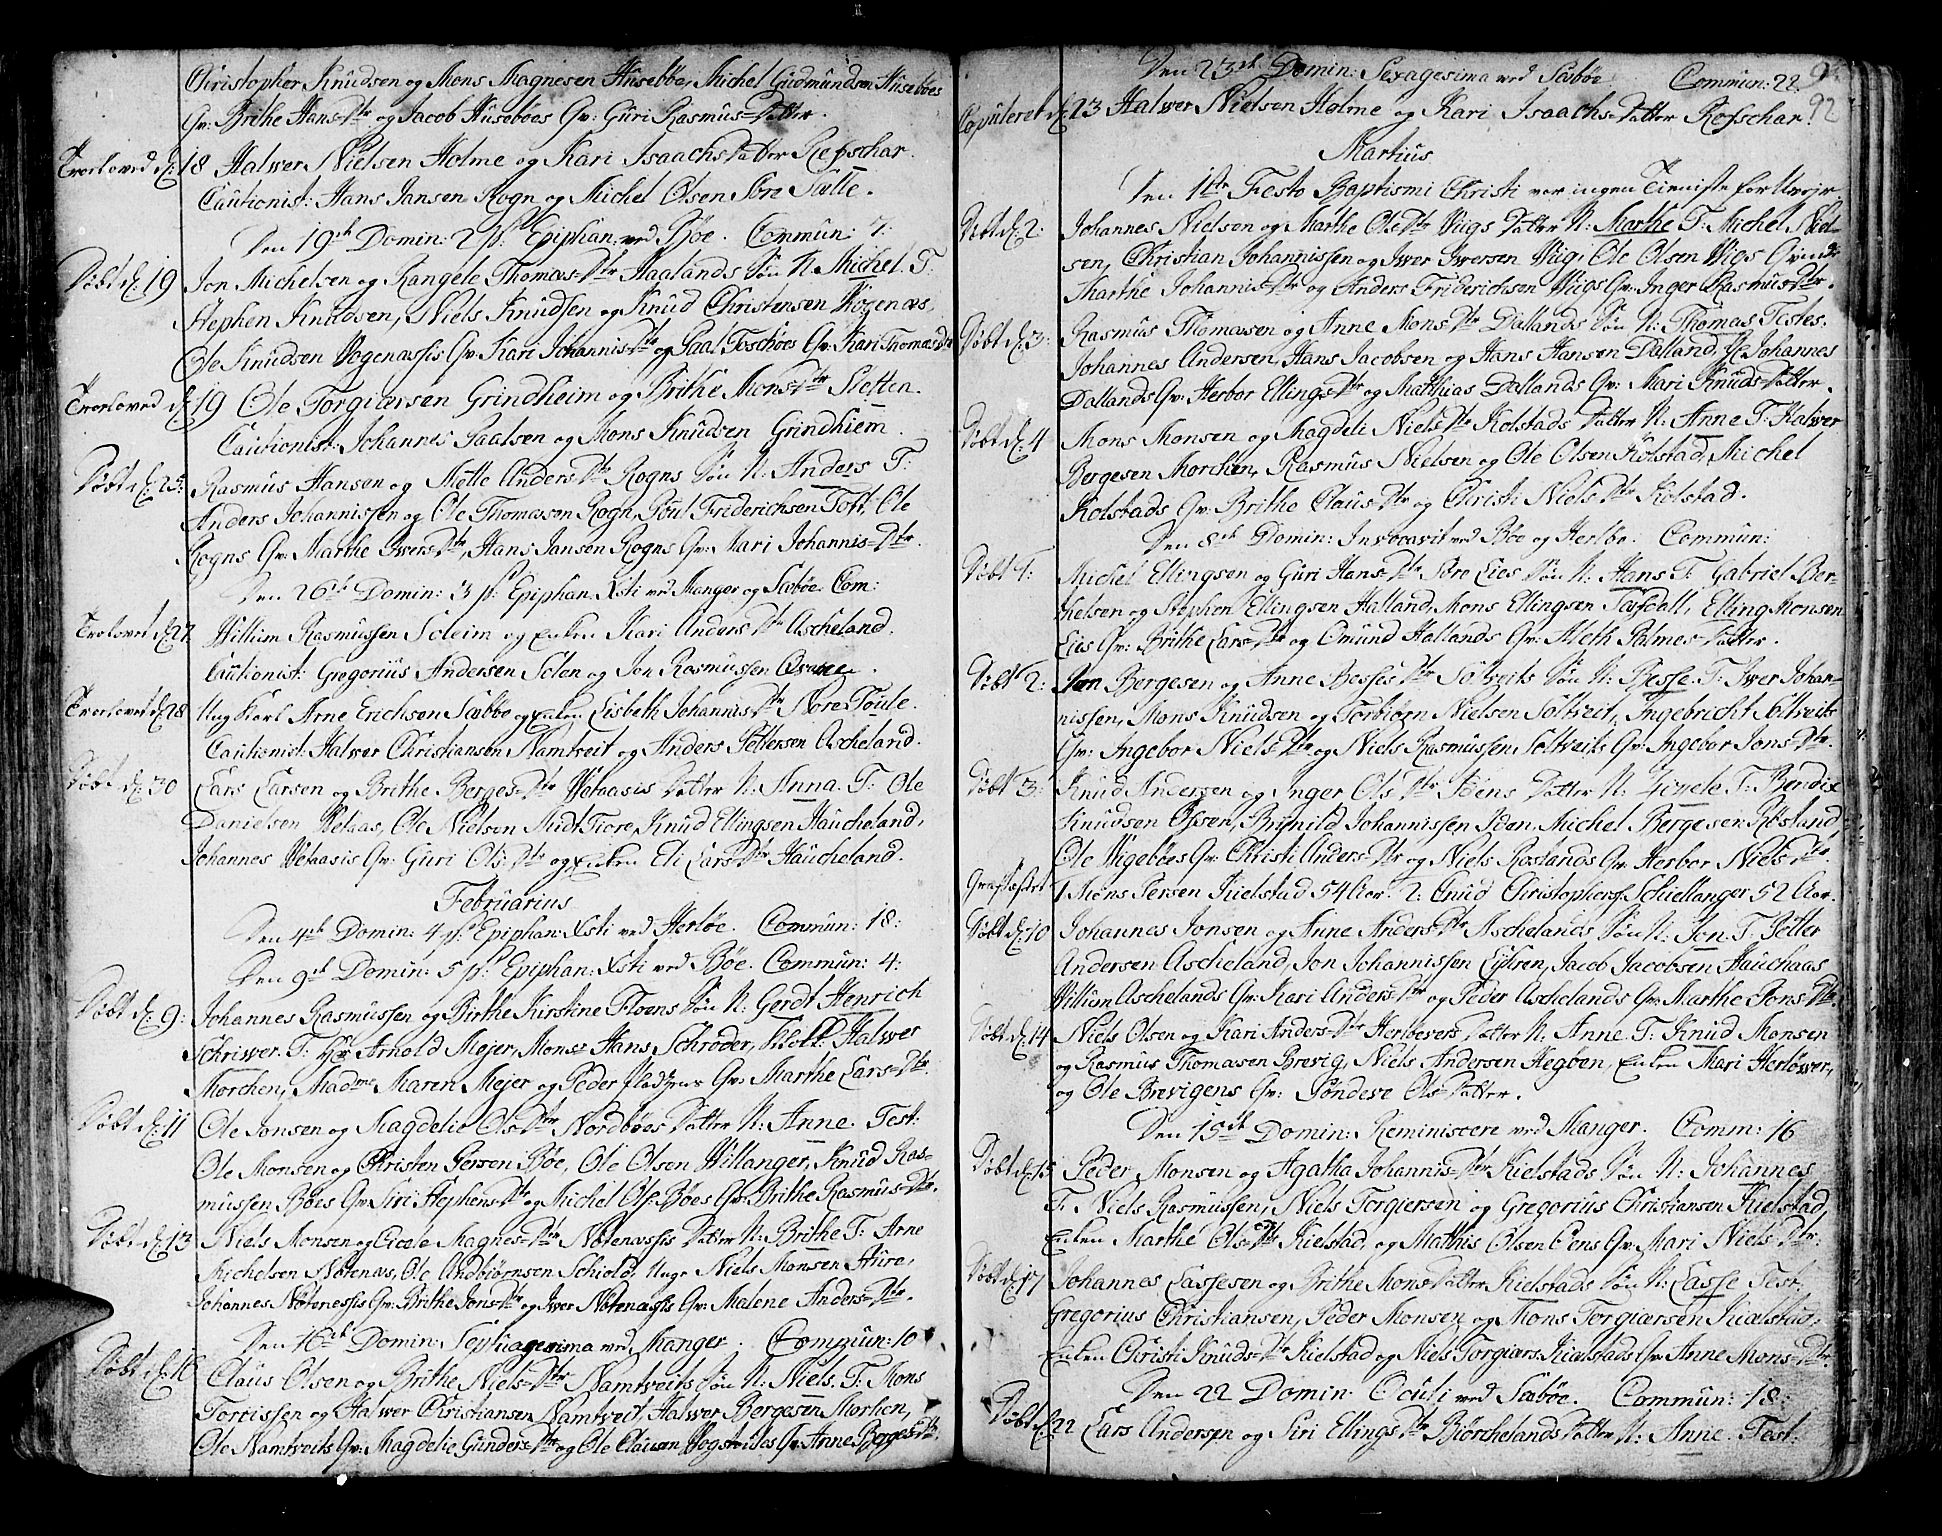 Christopher Knudsen og Mons Magnesen Husebøe, Michel Gudmundsen Husebøes
Qv: Brithe Hans=Dtr og Jacob Husebøes Qv: Guri Rasmus=Datter.
Trorlowed d: 18 Halwer Nielsen Holme og Kari Isaachs Datter Refschar.
Cautionist: Hans Jansen Rogn og Michel Olsen Søre Sætte.
Den 19th Domin: 2 p: Epiphan: ved Bøe. Commun: 7:
Døbt d: 19 Jon Michelsen og Rangele Thomas=Dtr Haalands Søn N: Michel. T:
Stephen Knudsen, Niels Knudsen og Knud Christensen Wogenæs,
Ole Knudsen Wogenæssis Qv: Kari Johannis=Dtr og Paal Toschøes Qv: Kari Thomas Dtr
Trorlowed d: 19 Ole Torgiersen Grindheim og Brithe Mons=Dtr Sletten.
Cautionist: Johannes Paalsen og Mons Knudsen Grindhiem.
Døbt d: 25: Rasmus Hansen og Mette Anders=Dtr Rogns Søn N: Anders T:
Anders Johannissen og Ole Thomassen Rogn, Poul Friderichsen Toft, Ole
Rogns Qv: Marthe Iwers=Dtr, Hans Jansen Rogns Qv: Mari Johannis=Dtr
Den 26th Domin: 3 p: Epiphan: Xsti ved Manger og Sæbøe. Com:
Trolovet d: 27 Willum Rasmussen Soleim og Enken Kari Anders Dtr Ascheland.
Cautionist: Gregorius Andersen Solem og Jon Rasmussen
Trorlovet d: 28 Ung Karl Arne Erichsen Sæbbø og Enken Lisbeth Johannis Dtr Nore Toule.
Cautionist: Halwer Christiansen Namtveit og Anders Pettersen Ascheland.
Døbt d: 30 Lars Larsen og Brithe Berges=Dtr Wetaasis Datter N: Anna. T: Ole
Danielsen Wetaas, Ole Nielsen Midt Fiore, Knud Ellingsen Haucheland,
Johannes Wetaasis Qv: Guri Ols=Dtr og Enken Eli Lars Dtr Haucheland.
Februarius
Den 4th Domin: 4 p: Epiphan: Xsti ved Herløe. Commun: 18:
Den 9th Domin: 5 p: Epiphan: Xsti ved Bøe. Commun: 4:
Døbt d: 9: Johannes Rasmussen og Birthe Kirstine Floens Søn N: Gerdt Henrich
Schriwer. T: Hr Arnold Mejer, Mons: Hans Schrøder, Halwer
Morchen, Madme Maren Mejer og Peder Qv: Marthe Lars=Dtr.
Døbt d: 11 Ole Jonsen og Magdelie Ols=Dtr Nordbøes Datter N: Anne. Test:
Ole Monsen og Christen Jersen Bøe, Ole Olsen Willanger, Knud Ras=
mussen Bøes Qv: Siri Stephens Dtr og Michel Ols: Bøes Qv: Brithe Rasmus=Dtr.
Døbt d: 13 Niels Monsen og Magnes=Dtr Nøtenæssis Datter N: Brithe T: Arne
Michelsen Nøtenæs, Ole Andbiørnsen Schiold, Unge Niels Monsen Hure,
Johannes Nøtenessis Qv: Brithe Jons=Dtr og Iwer Nøtenæssis Qv: Malene Anders=Dtr.
Den 16th Domin: Septuagesima ved Manger: Commun: 10
Døbt d: 16 Claus Olsen og Brithe Niels=Dtr Namtveits Søn N: Niels. T: Mons
Torrissen og Halwer Christiansen Namtveit, Halwer Bergesen Morken,
Ole Namtveits Qv: Magdelie Gunders=Dtr og Ole Clausen Qv: Anne Berges=Dtr.
Den 23th Domin: Sexagesima ved Sæbøe. Commun: 22.
92
Copuleret d: 23 Halwer Nielsen Holme og Kari Isaachs=Datter Refschar.
Martius
Den 1te Festo Baptismi Christi var ingen Tieniste for Uvejr
Døbt d: 2: Johannes Nielsen og Marthe Ols Dtr Wiigs Datter N: Marthe T: Michel Niel=
sen, Christian Johannissen og Iwer Iwersen Wiig, Ole Olsen Wiigs Qvinde
Marthe Johannis=Dtr og Anders Friderichsen Wiigs Qv: Inger Rasmus Dtr.
Døbt d: 3: Rasmus Thomassen og Anne Mons=Dtr Dallands Søn N: Thomas Testes.
Johannes Andersen, Hans Jacobsen og Hans Hansen Dalland, Johannes
Dallands Qv: Herbor Ellings Dtr og Matthias Dallands Qv: Mari Knuds=Datter.
Døbt d: 4 Mons Monsen og Magdeli Niels Dtr Kolstads Datter N: Anne T: Halwer
Bergesen Morchen, Rasmus Nielsen og Ole Olsen Kolstad, Michel
Kolstads Qv: Brithe Claus=Dtr og Christi Niels Dtr Kolstad.
Den 8th Domin: Invocavit ved Bøe og Herløe. Commun:
Døbt 1: Michel Ellingsen og Guri Hans=Dtr Søre Eies Søn N: Hans T: Gabriel Ber=
thelsen og Stephen Ellingsen Halland, Mons Ellingsen Torsdall, Elling Monsen
Eies Qv: Brithe Lars=Dtr og Omund Hallands Qv: Aleth Palmes=Datter.
Døbt 2: Jon Bergesen og Anne Besses Dtr Soltveits Søn N: Besse. T: Iwer Johan=
nissen, Mons Knudsen og Torbiørn Nielsen Soltveit, Ingebricht Soltveits
Qv: Ingebor Niels Dtr og Niels Rasmussen Soltveits Qv: Ingebor Jons=Dtr.
Døbt 3: Knud Andersen og Inger Ols Dtr Datter N: T: Bendix
Knudsen Ossen, Brynild Johannissen Iden, Michel Bergesen Røsland,
Ole Wigebøes Qv: Christi Anders=Dtr og Niels Roslands Qv: Herbor Niels Dtr.
Grafestet 1 Mons Persen Kielstad 54 Aar. 2: Knud Christophers: Schiellanger 52 Aar.
Døbt d: 10 Johannes Jonsen og Anne Anders Dtr Aschelands Søn N: Jon. T: Petter
Andersen Ascheland, Jon Johannissen Eykren, Jacob Jacobsen Hauchaas
Willum Aschelands Qv: Kari Anders Dtr og Peder Aschelands Qv: Marthe Jons=Dtr.
Døbt d: 14 Niels Olsen og Kari Anders=Dtr Herløevers Datter N: Anne. T: Knud Monsen
og Rasmus Thomassen Brevig, Niels Andersen Hegben, Enken Mari Herløwer,
og Ole Brevigens Qv: Søndeve Ols=Datter.
Den 15th Domin: Reminiscere ved Manger. Comm: 16
Døbt d: 15 Peder Monsen og Agatha Johannis=Dtr Kielstads Søn N: Johannes
T: Niels Rasmussen, Niels Torgiersen og Gregorius Christiansen Kielstad,
Enken Marthe Ols=Dtr Kielstad, og Matthis Olsen Eens Qv: Mari Niels=Dtr:
Døbt d: 17 Johannes Lassesen og Brithe Mons=Datter Kielstads Søn N: Lasse Test:
Gregorius Christiansen, Peder Monsen og Mons Torgiersen Kielstad,
Enken Christi Knuds=Dtr Kielstad og Niels Torgiers: Kielstads Qv: Anne Mons=Dtr
Den 22 Domin: Oculi ved Sæbøe. Commun: 18:
Døbt d: 22 Lars Andersen og Siri Ellings Dtr Biørchelands Datter N: Anne. Test: